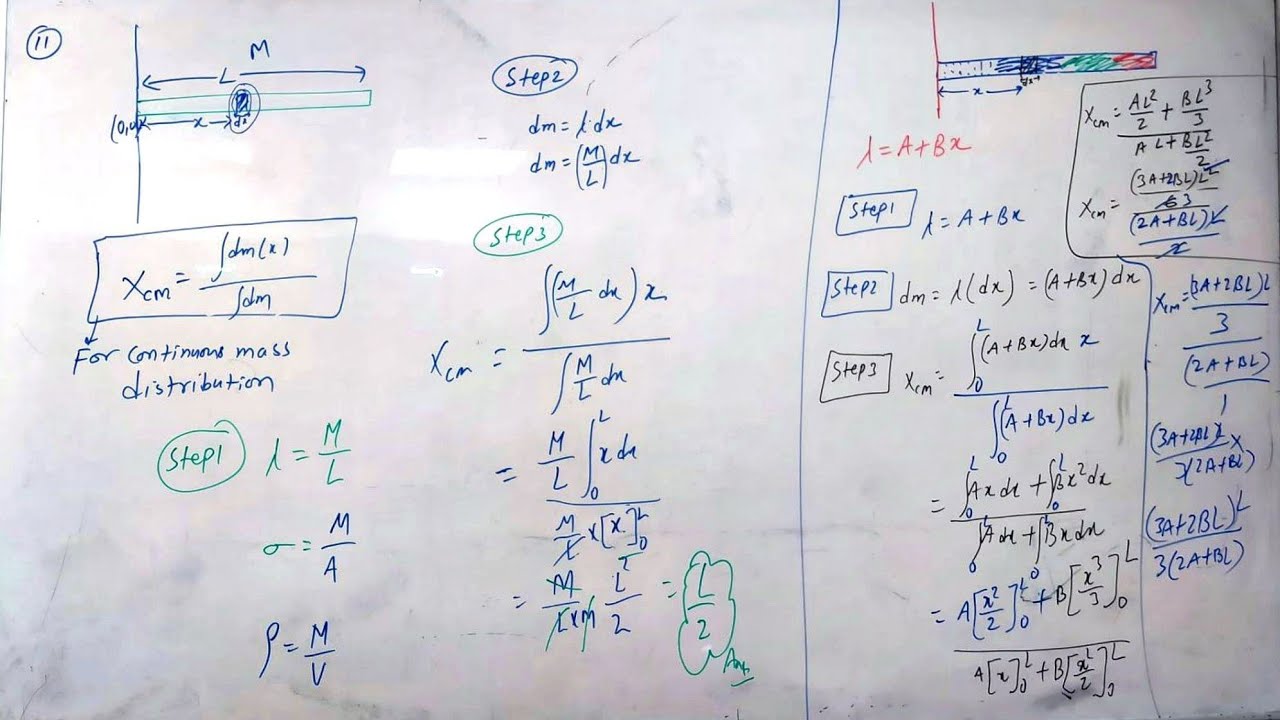 11
M
L
(0,0)
x
dx
X_cm = ∫dm(x) / ∫dm
For continuous mass
distribution
Step1
λ = M/L
σ = M/A
ρ = M/V
Step2
dm = λ·dx
dm = (M/L) dx
Step3
X_cm = ∫(M/L dx) x / ∫ M/L dx
= M/L ∫₀ᴸ x dx / M/L × [x]₀ᴸ
= M/(L×M) L²/2 = L/2
Ans
x
dx
λ = A+Bx
Step1
λ = A+Bx
Step2
dm = λ(dx) = (A+Bx) dx
Step3
X_cm = ∫₀ᴸ (A+Bx)dx x / ∫₀ᴸ (A+Bx)dx
= ∫₀ᴸ Ax dx + ∫₀ᴸ Bx² dx / ∫₀ᴸ A dx + ∫₀ᴸ Bx dx
= A[x²/2]₀ᴸ + B[x³/3]₀ᴸ / A[x]₀ᴸ + B[x²/2]₀ᴸ
X_cm = AL²/2 + BL³/3 / AL + BL²/2
X_cm = (3A+2BL)L² / 6 3 / (2A+BL)L / 2
X_cm = (3A+2BL)L / 3 / (2A+BL) / 1
(3A+2BL)L / 3(2A+BL)
(3A+2BL)L / 3(2A+BL)